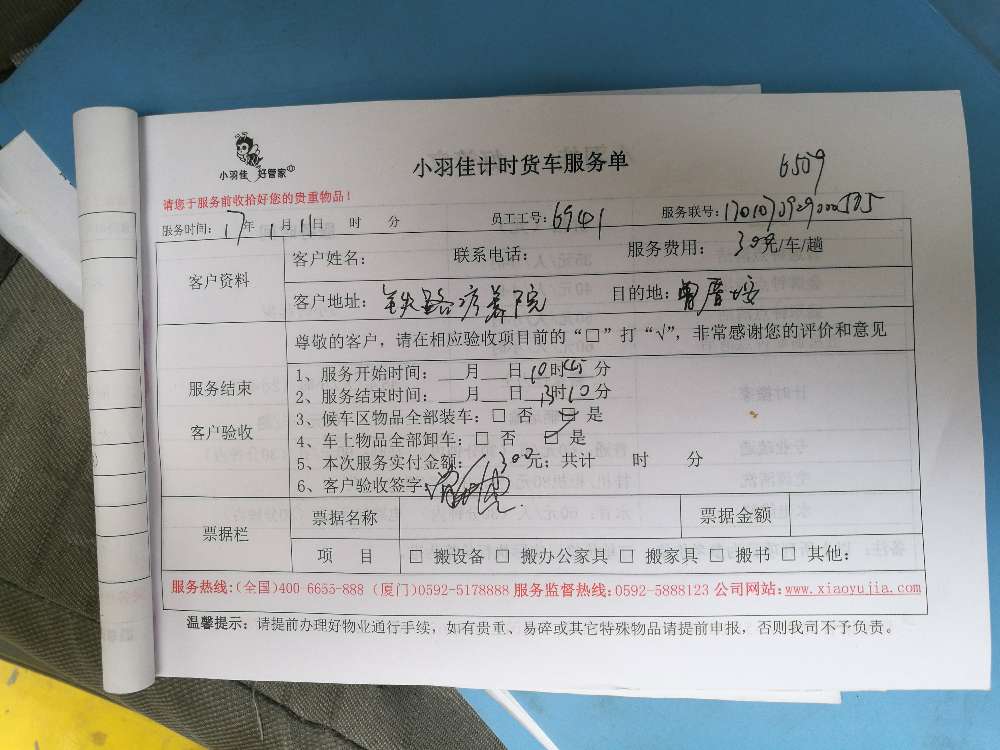 小羽佳 好管家
小羽佳计时货车服务单
6509
请您于服务前收拾好您的贵重物品！
服务时间：17年1月11日 时 分 员工工号：6941 服务联号：
客户资料
客户姓名： 联系电话： 服务费用：300元/车/趟
客户地址：铁路疗养院 目的地：曾厝垵
尊敬的客户，请在相应验收项目前的“□”打“√”，非常感谢您的评价和意见
服务结束
客户验收
1、服务开始时间：___月___日10时45分
2、服务结束时间：___月___日13时10分
3、候车区物品全部装车：□ 否 ☑ 是
4、车上物品全部卸车：□ 否 ☑ 是
5、本次服务实付金额：300元；共计 时 分
6、客户验收签字：
票据栏
票据名称 票据金额
项 目 □ 搬设备 □ 搬办公家具 □ 搬家具 □ 搬书 □ 其他：
服务热线:(全国)400-6655-888 (厦门)0592-5178888 服务监督热线:0592-5888123 公司网站:www.xiaoyujia.com
温馨提示：请提前办理好物业通行手续，如有贵重、易碎或其它特殊物品请提前申报，否则我司不予负责。